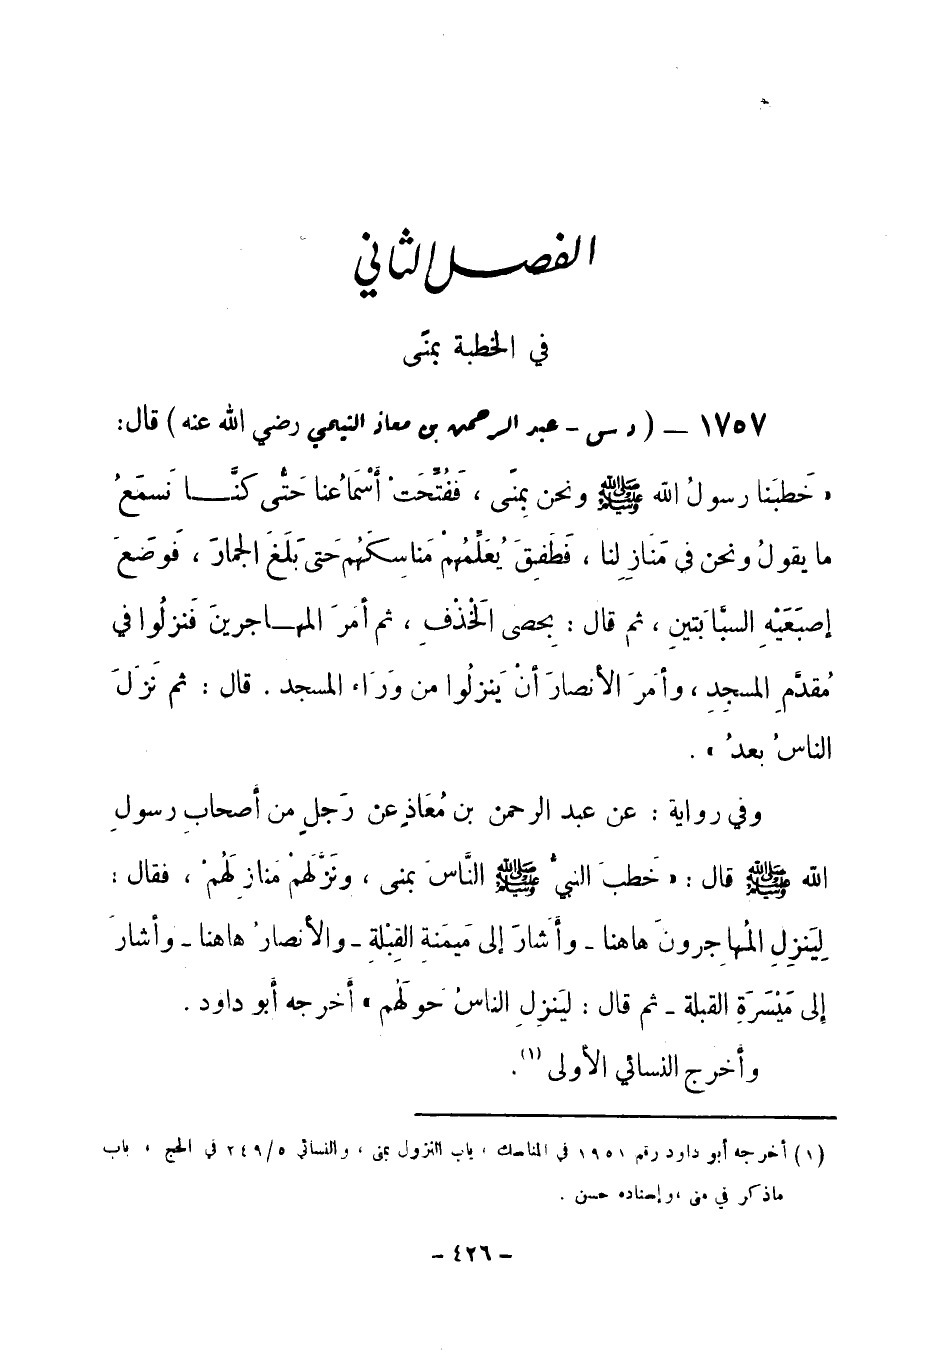 الفصل الثاني
في الخطبة بمنًى
١٧٥٧ ــ ( د س - عبد الرحمن بن معاذ التيمي رضي الله عنه ) قال :
« خَطبَنا رسولُ الله ﷺ ونحن بِمنًى ، فَفُتِّحَتْ أَسْمَاعُنا حَتَّى كنَّـــا نَسمَعُ
ما يقولُ ونحن في مَنَازِلنا ، فَطَفِقَ يُعَلِّمُهُمْ مَناسِكَهُم حَتى بَلَغَ الجمارَ ، فَوضَعَ
إصبَعَيْهِ السبَّابَتينِ ، ثم قال : بِحَصى الخَذْفِ ، ثم أمَرَ المهـاجرينَ فَنزلُوا في
مُقدَّمِ المسجِدِ ، وأمَرَ الأنصارَ أنْ يَنزِلُوا من وَرَاء المسجد . قال : ثم نَزَلَ
الناسُ بعدُ » .
وفي رواية : عن عبد الرحمن بن مُعَاذٍ عن رَجلٍ من أصحابِ رسولِ
الله ﷺ قال : « خَطبَ النبيُّ ﷺ النَّاسَ بمنى ، ونَزَّلَهُمْ مَنازِلَهُمْ ، فقال :
لِيَنزِلِ المُهاجرونَ هاهنا ـ وأَشارَ إلى مَيمَنةِ القِبْلةِ ـ والأنصارُ هاهنا ـ وأشارَ
إلى مَيْسَرَةِ القبلة ـ ثم قال : لِيَنزِلِ الناسُ حَولَهُم » أخرجه أبو داود .
وأخرج النسائي الأولى (١) .
(١) أخرجه أبو داود رقم ١٩٥١ في المناسك ، باب النزول بمنى ، والنسائي ٥/٢٤٩ في الحج ، باب
ماذكر في منى ، وإسناده حسن .
- ٤٢٦ -